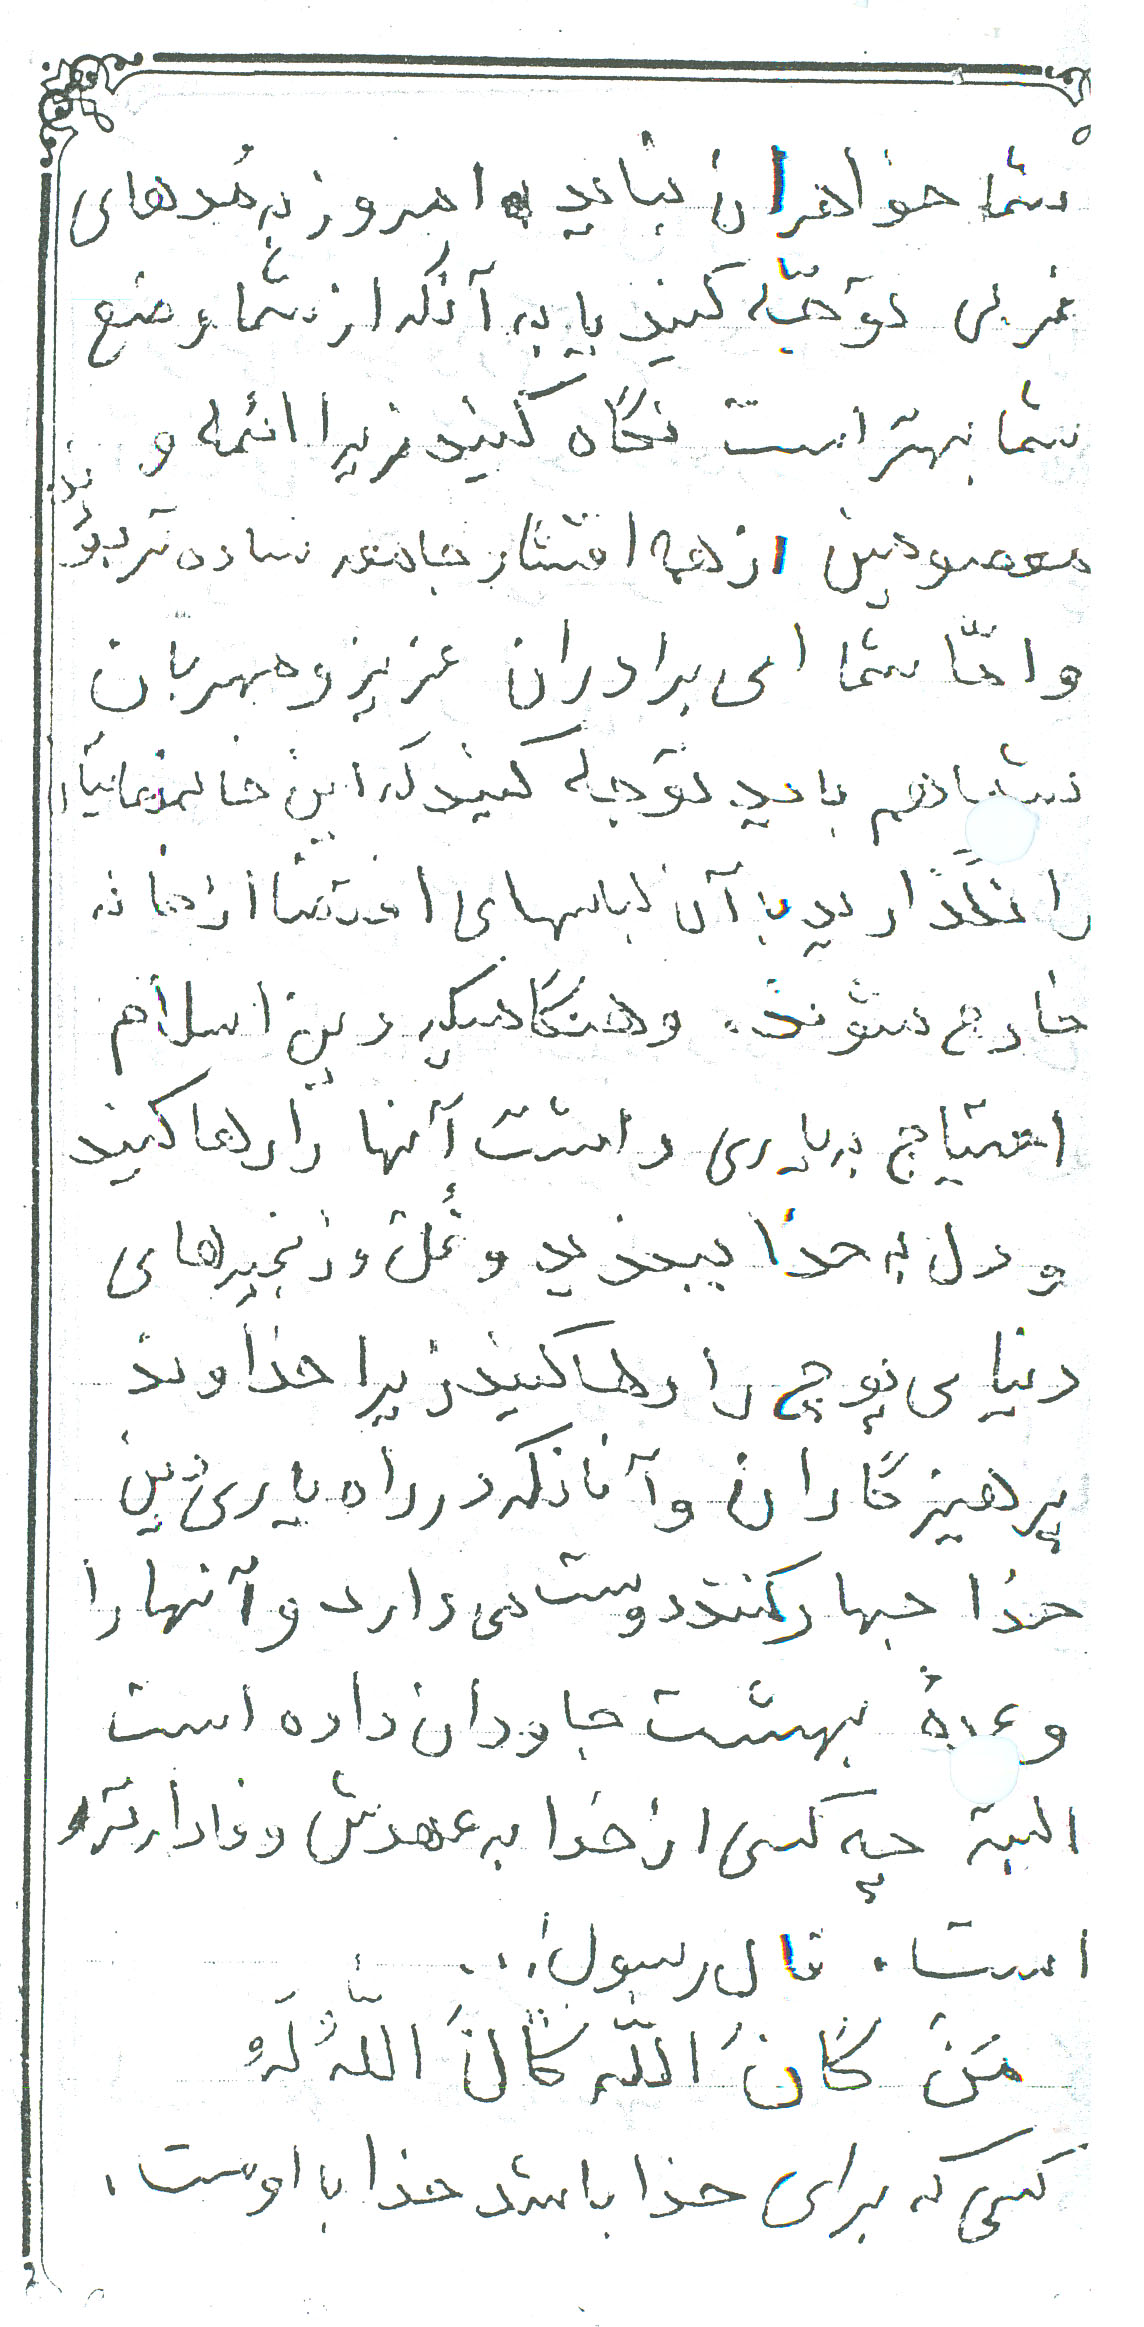 شما خواهران نباید امروز به مُدهای
غربی توجّه کنید یا به آنکه از شما وضع
شما بهتر است نگاه کنید زیرا ائمه و
معصومین از همه اقشار جامعه ساده تر بودند
و امّا شما ای برادران عزیز و مهربان
شما هم باید توجه کنید که این
را نگذارید با آن لباسهای از خانه
خارج شوند. و هنگامیکه دین اسلام
احتیاج به یاری داشت آنها را رها کنید
و دل به خدا ببندید و غُل و زنجیرهای
دنیای پوچ را رها کنید زیرا خداوند
پرهیزگاران و آنانکه در راه یاری دین
خدا جهاد کنند دوست می دارد و آنها را
وعدهٔ بهشت جاودان داده است
البته چه کسی از خدا به عهدش وفادارتر
است. قال رسول ا...
مَنْ کَانَ اللّه کَانَ اللّهُ لَهُ
کسی که برای خدا باشد خدا با اوست.